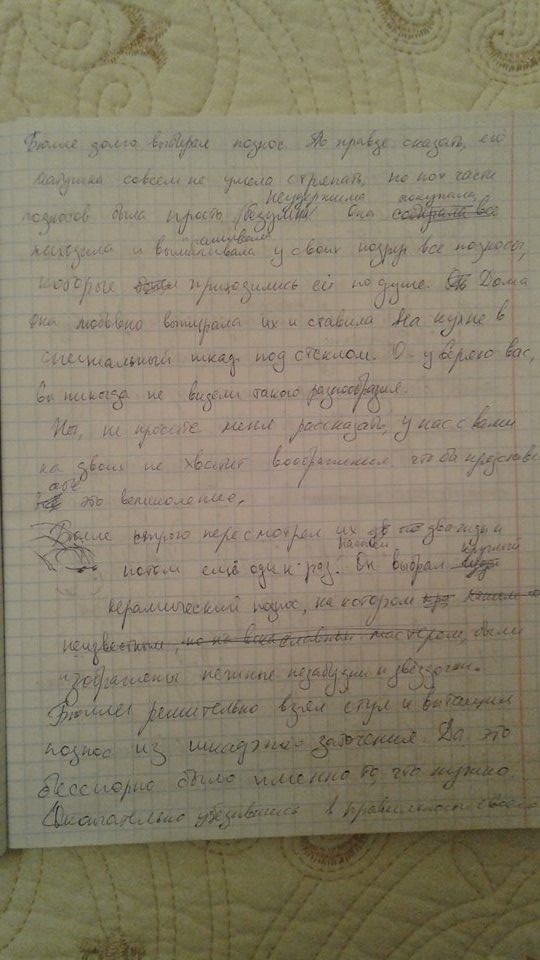 долго выбирал поднос. По правде сказать, его
бабушка совсем не умела стряпать, но по части
подносов была просто неудержима Она покупала,
находила и выманивала у своих подруг все подносы,
которые приходились ей по душе. Дома
она любовно вытирала их и ставила на кухне в
специальный шкаф под стеклом. О уверяю вас,
вы никогда не видели такого разнообразия.
Но, не просите меня рассказать, у нас с вами
на двоих не хватит воображения что бы представ
это великолепие.
пересмотрел их дважды и
потом ещё один раз. Он выбрал круглый
керамический поднос, на котором
неизвестным, но мастером, были
изображены нежные незабудки и звёздочки.
решительно взял стул и вытащил
поднос из заточения. Да это
бесспорно было именно то, что нужно.
Окончательно убедившись в правильности своего